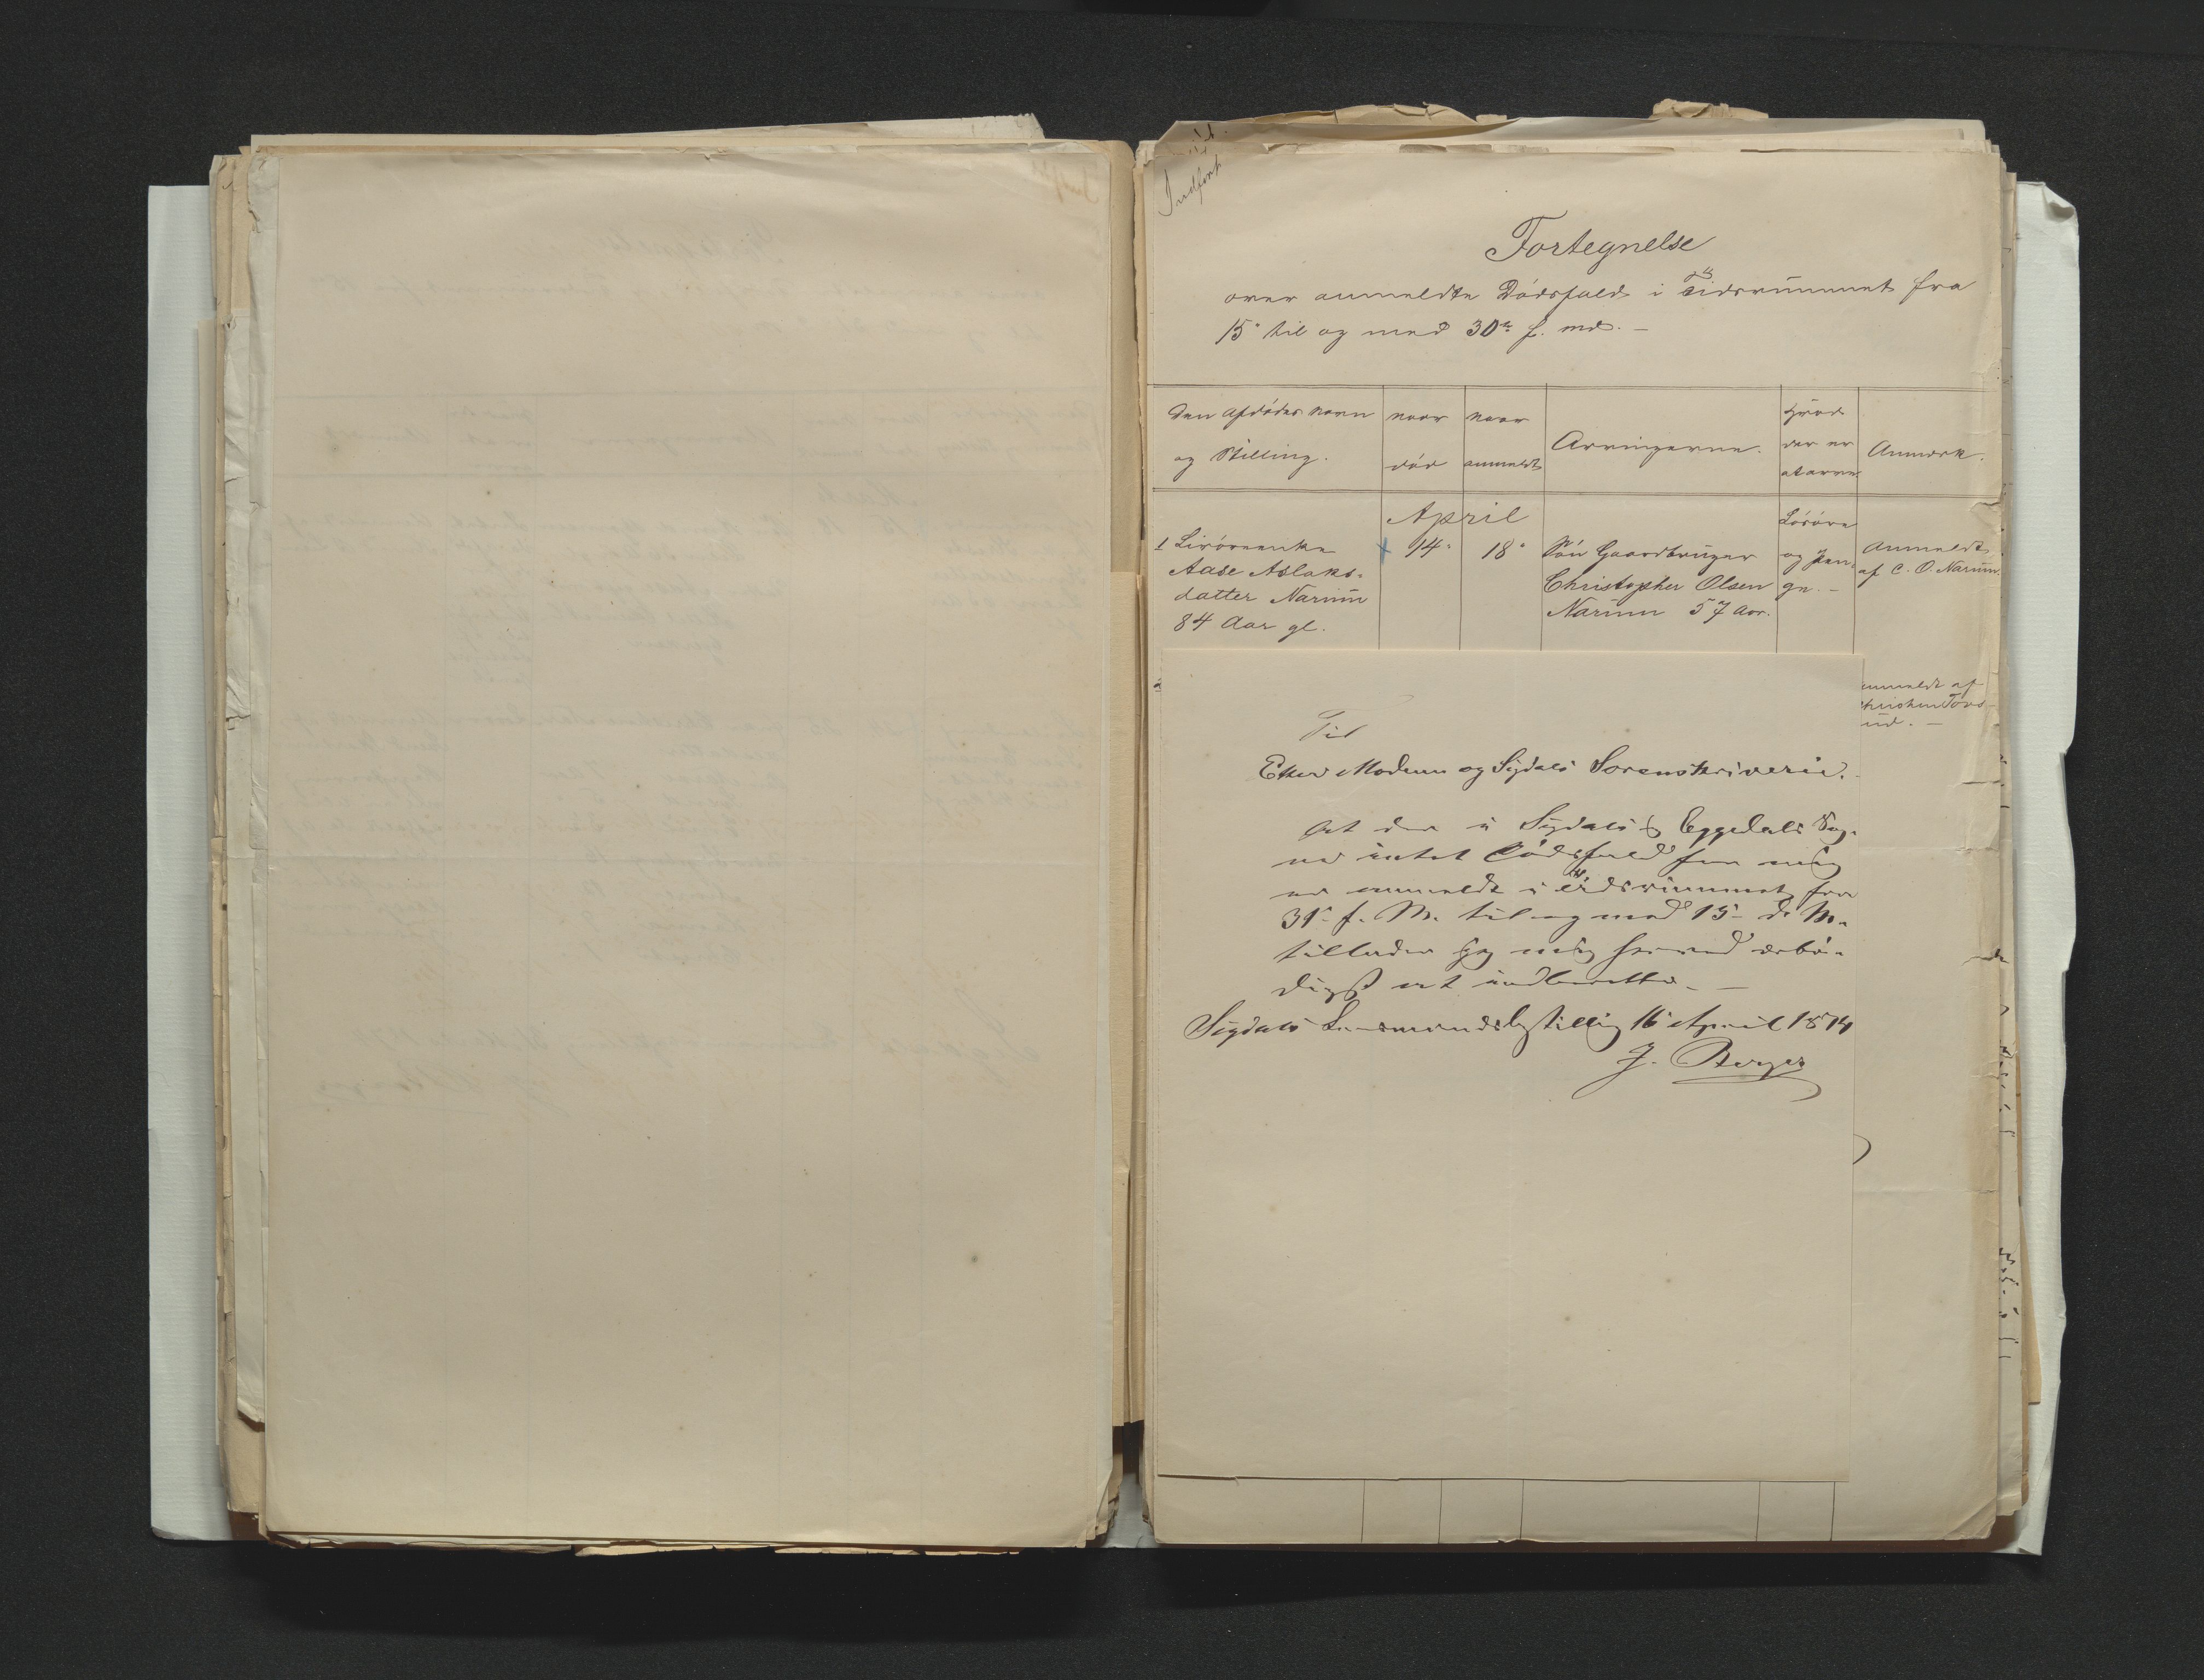 Indført
Fortegnelse
over anmeldte Dødsfald i Tidsrummet fra
15de til og med 30te f. md. –
Den Afdødes Navn
og Stilling.
naar
død
naar
anmeldt
Arvingerne.
Hvad
der er
at arve
Anmærk.
April
1 Livørenke
Aase Aslaks-
datter Narum
84 Aar gl.
14de
18de
Søn Gaardbruger
Christopher Olsen
Narum 57 Aar.
Løsøre
og Pen-
ge. –
Anmeldt
af C. O. Narum.
anmeldt af
Til
Eker Modum og Sigdals Sorenskriveri.
At der i Sigdals & Eggedals Sog-
ne intet Dødsfald for mig
er anmeldt i Tidsrummet fra
31te f. M. til og med 15de d. M.
tillader jeg mig herved ærbø-
digst at indberette. –
Sigdals Lensmandsbestilling 16 April 1874
J. Berger